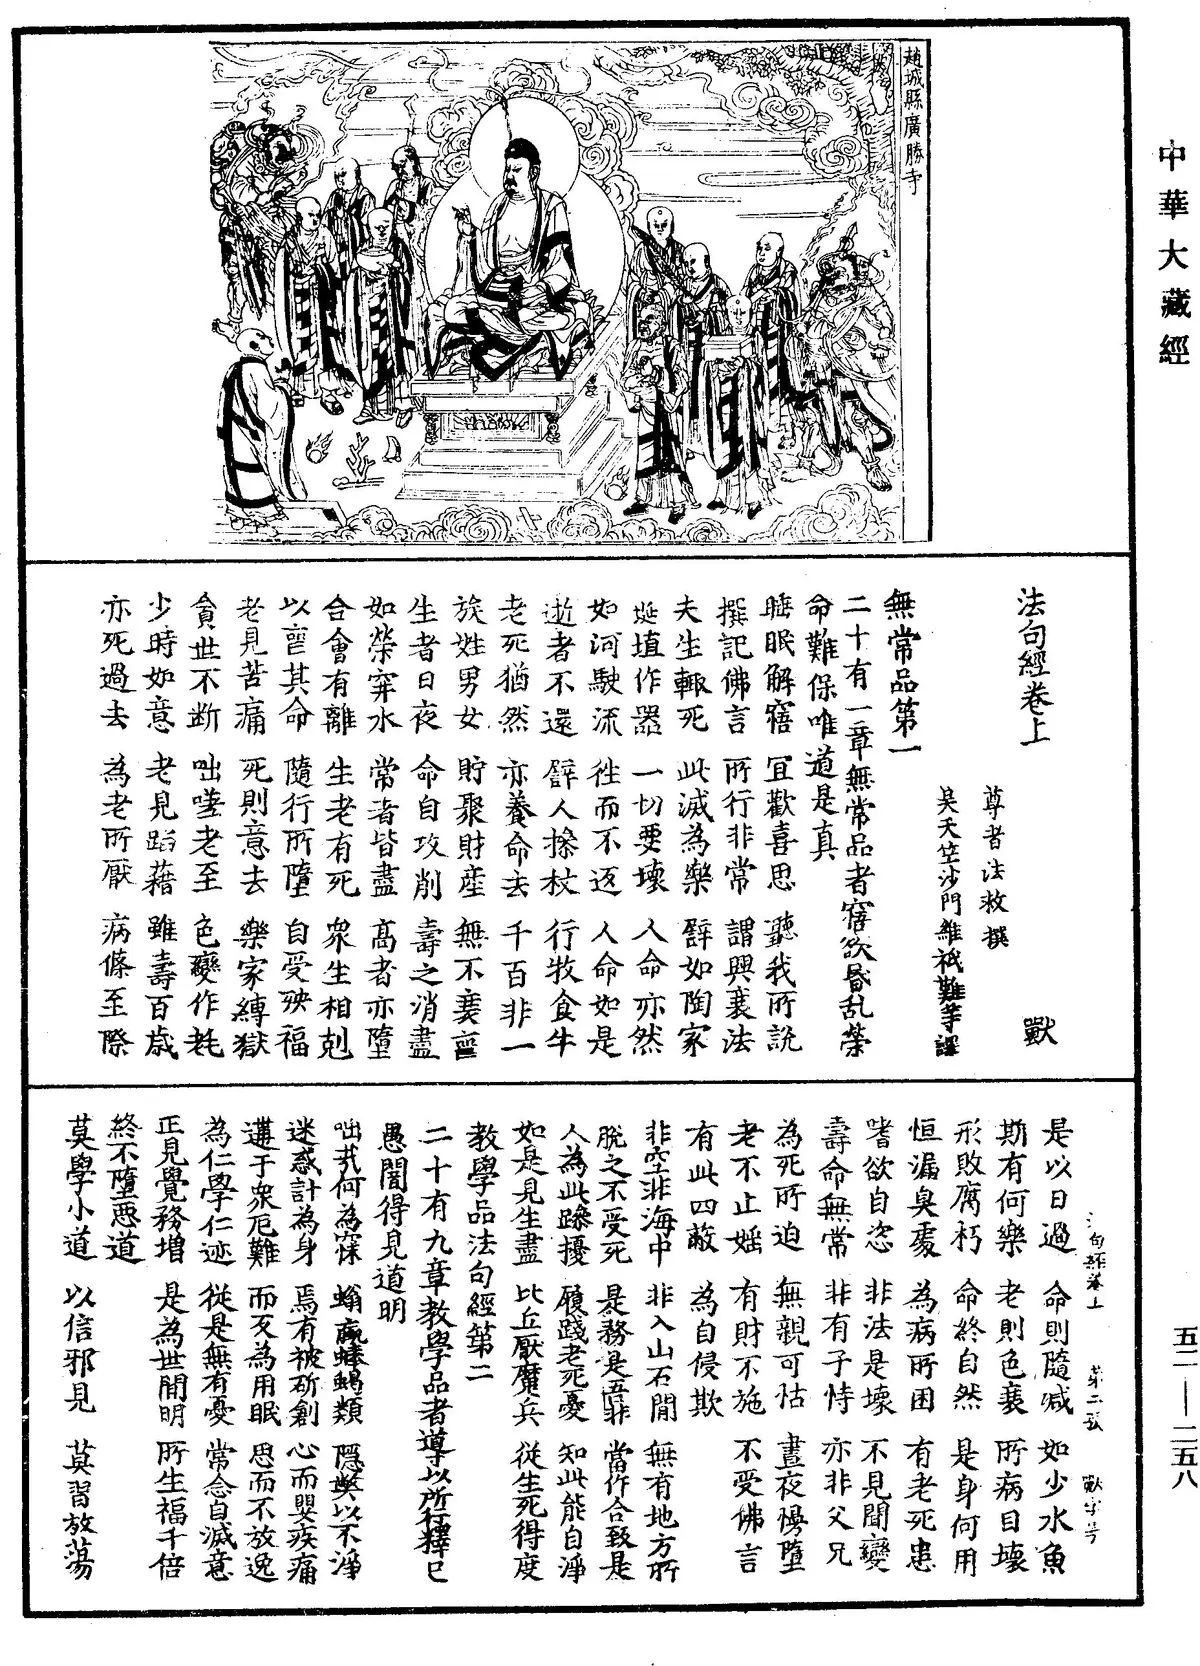 中華大藏經
趙城縣廣勝寺
法句經卷上 獸
尊者法救撰
吳天竺沙門維祇難等譯
無常品第一
二十有一章無常品者寤欲昬乱榮
命難保唯道是真
睡眠解寤 冝歡喜思 聽我所說
撰記佛言 所行非常 謂興衰法
夫生輙死 此滅為樂 譬如陶家
埏埴作器 一切要壞 人命亦然
如河駛流 徃而不返 人命如是
逝者不還 譬人操杖 行牧食牛
老死猶然 亦養命去 千百非一
族姓男女 貯聚財產 無不衰喪
生者日夜 命自攻削 壽之消盡
如榮穽水 常者皆盡 高者亦墮
合會有離 生老有死 眾生相剋
以喪其命 隨行所墮 自受殃福
老見苦痛 死則意去 樂家縛獄
貪世不断 咄嗟老至 色變作耄
少時如意 老見蹈藉 雖壽百歲
亦死過去 為老所厭 病條至際
是以日過 命則隨減 如少水魚
斯有何樂 老則色衰 所病自壞
形敗腐朽 命終自然 是身何用
恒漏臭處 為病所困 有老死患
嗜欲自恣 非法是壞 不見聞變
壽命無常 非有子恃 亦非父兄
為死所迫 無親可怙 晝夜慢墮
老不止婬 有財不施 不受佛言
有此四蔽 為自侵欺
非空非海中 非入山石間 無有地方所
脫之不受死 是務是吾作 當作合致是
人為此躁擾 履踐老死憂 知此能自淨
如是見生盡 比丘厭魔兵 從生死得度
教學品法句經第二
二十有九章教學品者導以所行釋已
愚闇得見道明
咄哉何為寐 螉𧕅蟻蝎類 隱弊以不淨
迷惑計為身 焉有被斫創 心而嬰疾痛
遘于眾厄難 而反為用眠 思而不放逸
為仁學仁迹 從是無有憂 常念自滅意
正見覺務增 是為世間明 所生福千倍
終不墮惡道
莫學小道 以信邪見 莫習放蕩
法句經卷上 第二張 獸字号
五二—二五八